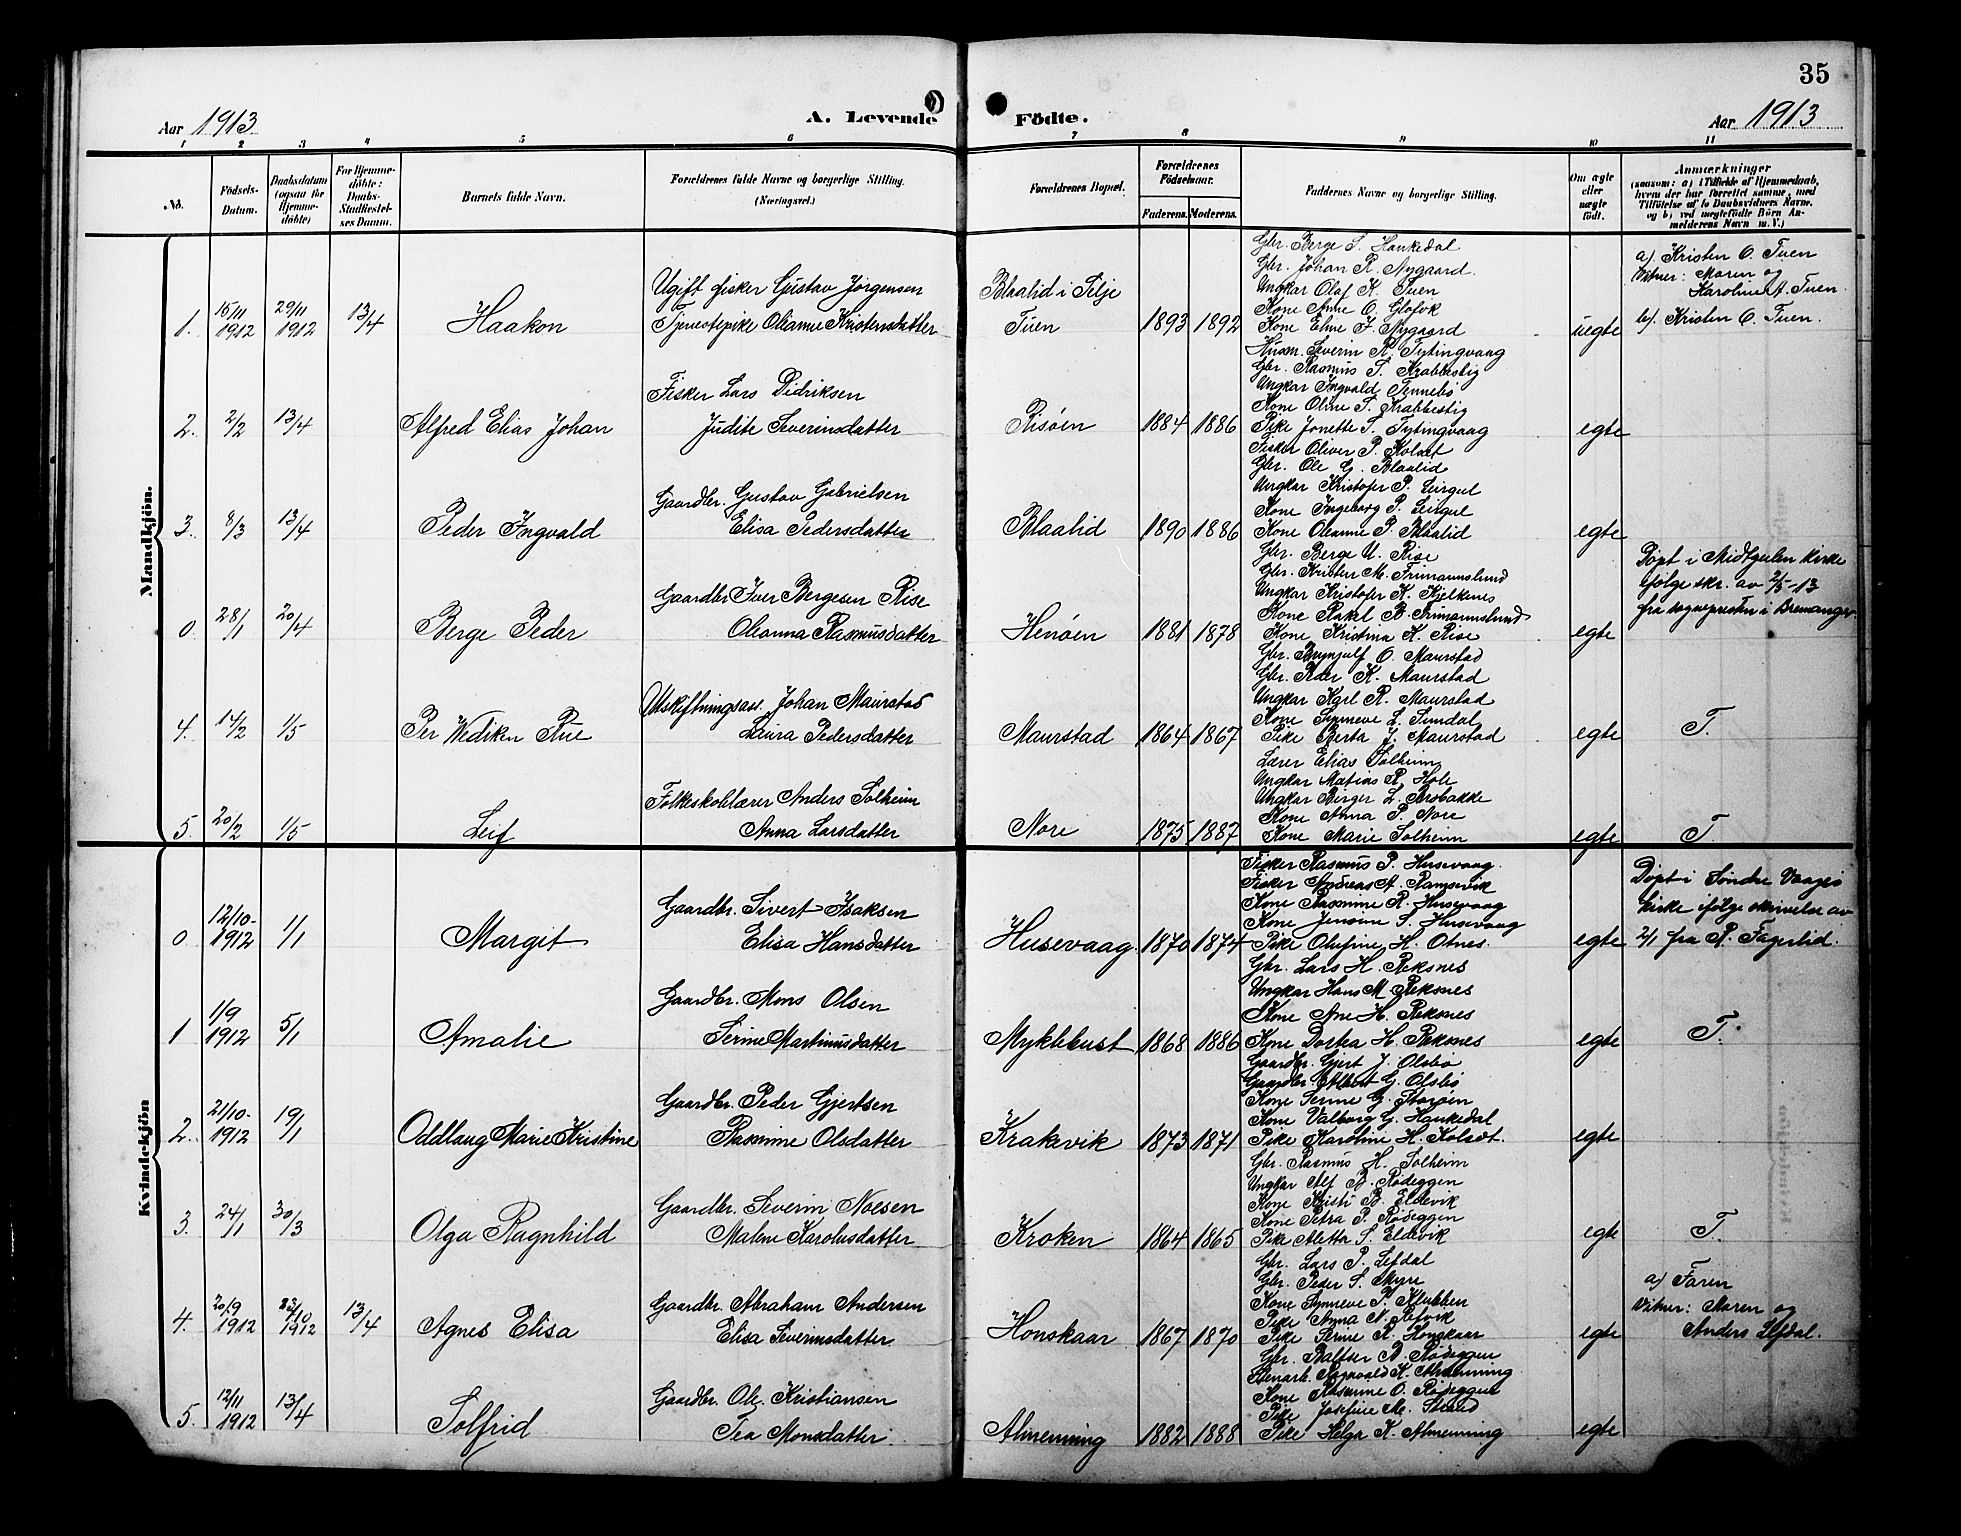 35
Aar 1913
A. Levende Födte.
Aar 1913
1 2 3 4 5 6 7 8 9 10 11
No.
Födsels-Datum.
Daabsdatum (ogsaa för Hjemmedöbte)
For Hjemmedöbte: Daabs-Stadfæstelses Datum.
Barnets fulde Navn.
Forældrenes fulde Navne og borgerlige Stilling. (Næringsvei.)
Forældrenes Bopæl.
Forældrenes Födselsaar.
Faderens. Moderens.
Faddernes Navne og borgerlige Stilling.
Om ægte eller uægte födt.
Anmærkninger
(saasom: a) i Tilfælde af Hjemmedaab, hvem der har forrettet samme, med Tilföielse af to Daabsvidners Navne, og b) ved uægtefödte Börn Anmelderens Navn m. V.)
Mandkjön.
1. 15/11 1912 29/11 1912 13/4 Haakon
Ugift fisker Gustav Jörgensen
Tjenestepike Oleanne Kristensdatter
Blaalid i Selje
Tuen 1893 1892
Gbr. Berge S. Haukedal
Gbr. Johan R. Nygaard
Ungkar Olaf K. Tuen
Kone Anne O. Glofok
Kone Eline J. Nygaard
uegte
a) Kristen O. Tuen
Vitner: Maren og
Karoline A. Tuen
b) Kristen O. Tuen.
2. 2/2 13/4 Alfred Elias Johan
Fisker Lars Didriksen
Judite Severinsdatter
Risøen 1884 1886
Husm. Severin R. Tytingvaag
Gbr. Rasmus S. Krabbestig
Ungkar Ingvald Tennebø
Kone Oline S. Krabbestig
Pike Jonette S. Tytingvaag
egte
3. 8/3 13/4 Peder Ingvald
Gaardbr. Gustav Gabrielsen
Elisa Pedersdatter
Blaalid 1890 1886
Fisker Oliver P. Kolset
Gbr. Ole G. Blaalid
Ungkar Kristofer P. Leirgul
Kone Ingeborg P. Leirgul
Kone Oleanne P. Blaalid
egte
0 28/1 20/4 Berge Peder
Gaardbr Iver Bergesen Rise
Oleanna Rasmusdatter
Henøen 1881 1878
Gbr. Berge U. Rise
Gbr. Kristen M. Frimannslund
Ungkar Kristofer K. Kjelkenes
Kone Rakel B. Frimannslund
Kone Kristina K. Rise
egte
Døpt i Midtgulen kirke
ifølge skr. av 2/5-13
fra sognepresten i Bremanger.
4. 14/2 1/5 Per Wediken Rue
Utskiftningsass. Johan Maurstad
Laura Pedersdatter
Maurstad 1864 1867
Gbr. Brynjulf O. Maurstad
Gbr. Peder K. Maurstad
Ungkar Karl R. Maurstad
Kone Synneve L. Sundal
Pike Berta J. Maurstad
egte T.
5. 20/2 1/5 Leif
Folkeskolelærer Anders Solheim
Anna Larsdatter
Nore 1875 1887
Lærer Elias Solheim
Ungkar Matias R. Hole
Ungkar Birger L. Brobakke
Kone Anna P. Nore
Kone Marie Solheim
egte T.
Kvindekjön
0 12/10-1912 1/1 Margit
Gaardbr. Sivert Isaksen
Elisa Hansdatter
Husevaag 1870 1874
Fisker Rasmus P. Husevaag.
Fisker Andreas A. Ramsevik
Kone Rasmine R. Husevaag
Kone Jensine S. Husevaag
Pike Olufine H. Otnes
egte
Døpt i Søndre Vaagsø
kirke ifølge skrivelse av
2/1 fra R. Fagerlid.
1 1/9 1912 5/1 Amalie
Gaardbr. Mons Olsen
Serine Martinusdatter
Myklebust 1868 1886
Gbr. Lars H. Reksnes
Ungkar Hans M. Reksnes
Kone Ane H. Reksnes
Kone Dortea H. Reksnes
egte T.
2. 21/10-1912 19/1 Oddlaug Marie Kristine
Gaardbr. Peder Gjertsen
Rasmine Olsdatter
Krakevik 1873 1871
Gaardbr. Gjert J. Olsbø
Gaardbr Albert G. Olsbø
Kone Serine G. Storøen
Kone Valborg G. Haukedal
Pike Karoline H. Kolset.
egte
3. 24/1 30/3 Olga Ragnhild
Gaardbr. Severin Noesen
Malene Karolusdatter
Kroken 1864 1865
Gbr. Rasmus H. Solheim
Ungkar Alf R. Rødeggen
Kone Kristi B. Eldevik
Kone Petra P. Rødeggen
Pike Aletta S. Eldevik
egte T.
4. 20/9 1912 23/10 1912 13/4 Agnes Elisa
Gaardbr. Abraham Andersen
Elisa Severinsdatter
Honskaar 1867 1870
Gbr. Lars P. Lefdal
Gbr. Peder S. Myre
Kone Synneve P. Klubben
Pike Anna N.
Pike Serine R. Honskaar
egte
a) Faren
Vitner: Maren og
Anders Lefdal.
5. 12/11 1912 13/4 Solfrid
Gaardbr. Ole Kristiansen
Tea Monsdatter
Almenning 1882 1888
Gbr. Baltser B. Rødeggen
Stenarb. Ragnvald K. Almenning
Kone Rasmine O. Rødeggen
Pike Josefine M. Strand
Pike Helga K. Almenning
egte